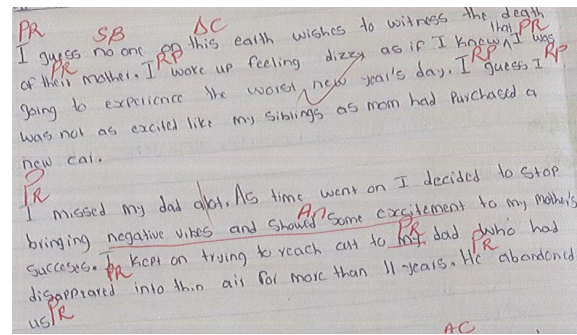 PR SB AC
I guess no one on this earth wishes to witness the death
that PR
of their mother. I woke up feeling dizzy as if I knew I was
PR RP RP RP
going to experience the worst new year's day. I guess I
was not as excited like my siblings as mom had purchased a
new car.
PR
I missed my dad alot. As time went on I decided to stop
An
bringing negative vibes and should some excitement to my mother's
PR PR
succeses. I kept on trying to reach out to my dad who had
PR PR
disappeared into thin air for more than 11 years. He abandoned
us PR
AC